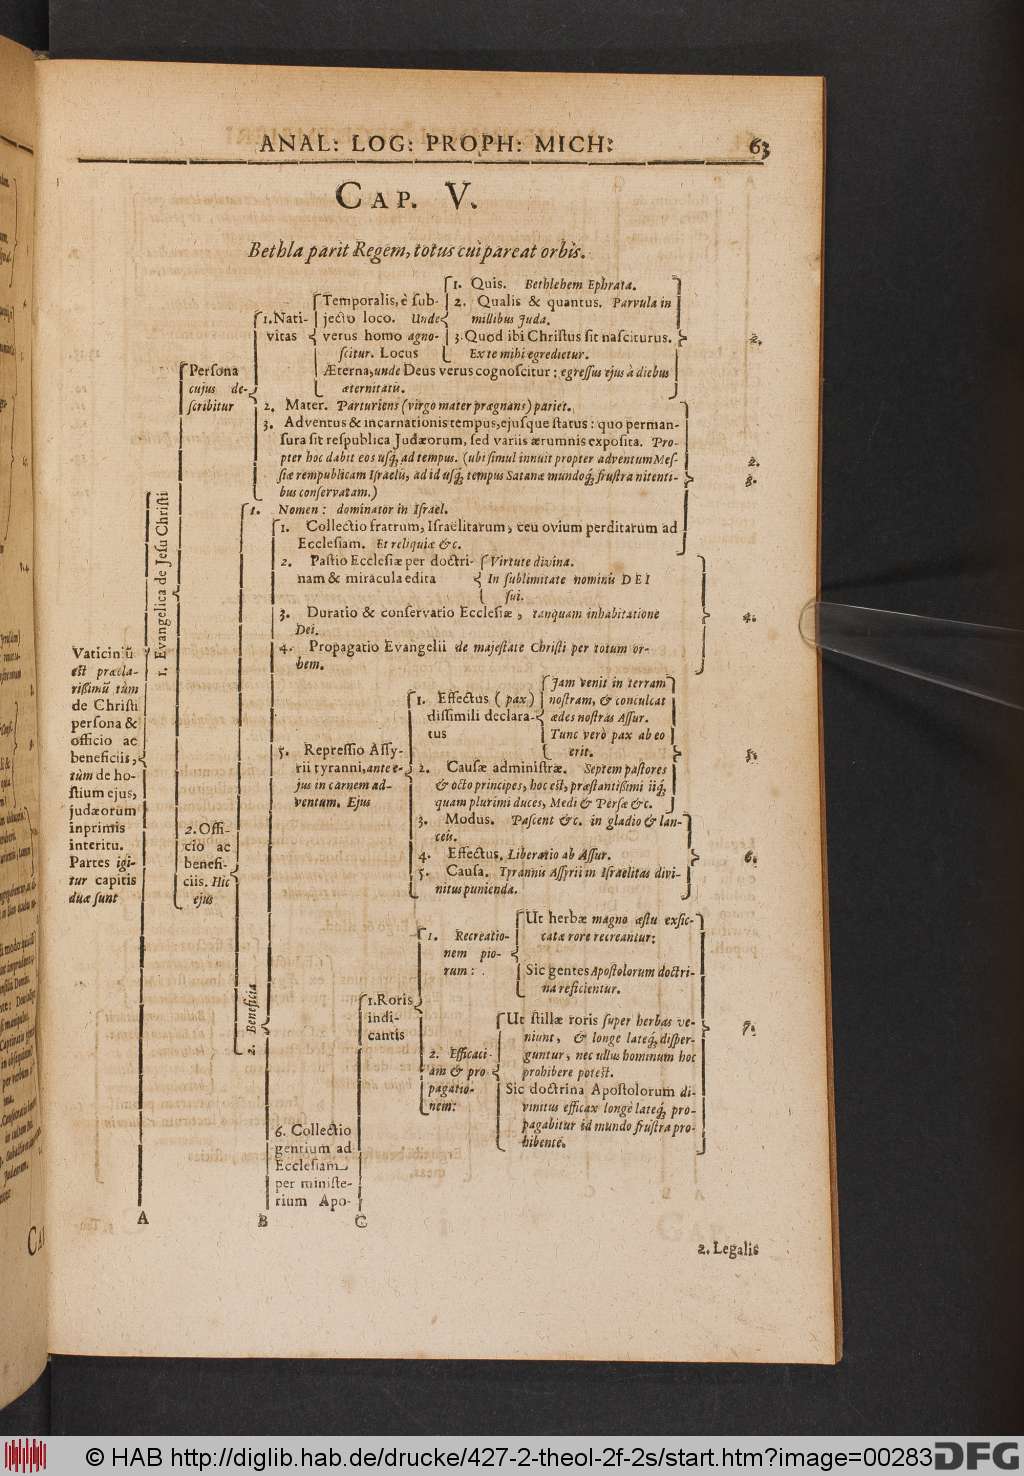 ANAL: LOG: PROPH: MICH: 63
CAP. V.
Bethla parit Regem, totus cui pareat orbis.
Vaticiniũ
est præcla-
rißimũ tùm
de Christi
persona &
officio ac
beneficiis,
tùm de ho-
stium ejus,
judæorum
inprimis
interitu.
Partes igi-
tur capitis
duæ sunt
1. Evangelica de Jesu Christi
Persona
cujus de-
scribitur
1. Nati-
vitas
Temporalis, è sub-
jecto loco. Unde
verus homo agno-
scitur. Locus
1. Quis. Bethlehem Ephrata.
2. Qualis & quantus. Parvula in
millibus Juda.
3. Quod ibi Christus sit nasciturus.
Ex te mihi egredietur.
2.
Æterna, unde Deus verus cognoscitur: egressus ejus à diebus
æternitatis.
2. Mater. Parturiens (virgo mater prægnans) pariet.
3. Adventus & incarnationis tempus, ejusque status: quo perman-
sura sit respublica Judæorum, sed variis ærumnis exposita. Pro-
pter hoc dabit eos usq́; ad tempus. (ubi simul innuit propter adventum Mes-
siæ rempublicam Israelis, ad id usq́; tempus Satanæ mundoq́; frustra nitenti-
bus conservatam.)
2.
3.
2. Offi-
cio ac
benefi-
ciis. Hic
ejus
1. Nomen: dominator in Israel.
2. Beneficia
1. Collectio fratrum, Israëlitarum, ceu ovium perditarum ad
Ecclesiam. Et reliquiæ &c.
2. Pastio Ecclesiæ per doctri-
nam & miracula edita
Virtute divina.
In sublimitate nominis DEI
sui.
3. Duratio & conservatio Ecclesiæ, tanquam inhabitatione
Dei.
4. Propagatio Evangelii de majestate Christi per totum or-
bem.
4.
5. Repressio Assy-
rii tyranni, ante e-
jus in carnem ad-
ventum. Ejus
1. Effectus (pax)
dissimili declara-
tus
Jam venit in terram
nostram, & conculcat
ædes nostras Assur.
Tunc verò pax ab eo
erit.
2. Causæ administræ. Septem pastores
& octo principes, hoc est, præstantißimi iiq́;
quam plurimi duces, Medi & Persæ &c.
5.
3. Modus. Pascent &c. in gladio & lan-
ceis.
4. Effectus. Liberatio ab Assur.
5. Causa. Tyrannis Assyrii in Israelitas divi-
nitus punienda.
6.
6. Collectio
gentium ad
Ecclesiam
per ministe-
rium Apo-
1. Roris
indi-
cantis
1. Recreatio-
nem pio-
rum:
Ut herbæ magno æstu exsic-
catæ rore recreantur:
Sic gentes Apostolorum doctri-
na reficientur.
2. Efficaci-
am & pro-
pagatio-
nem:
Ut stillæ roris super herbas ve-
niunt, & longe lateq́; disper-
guntur, nec ullus hominum hoc
prohibere potest.
Sic doctrina Apostolorum di-
vinitus efficax longè lateq́; pro-
pagabitur id mundo frustra pro-
hibente.
7.
A B C
2. Legalis
© HAB http://diglib.hab.de/drucke/427-2-theol-2f-2s/start.htm?image=00283
DFG